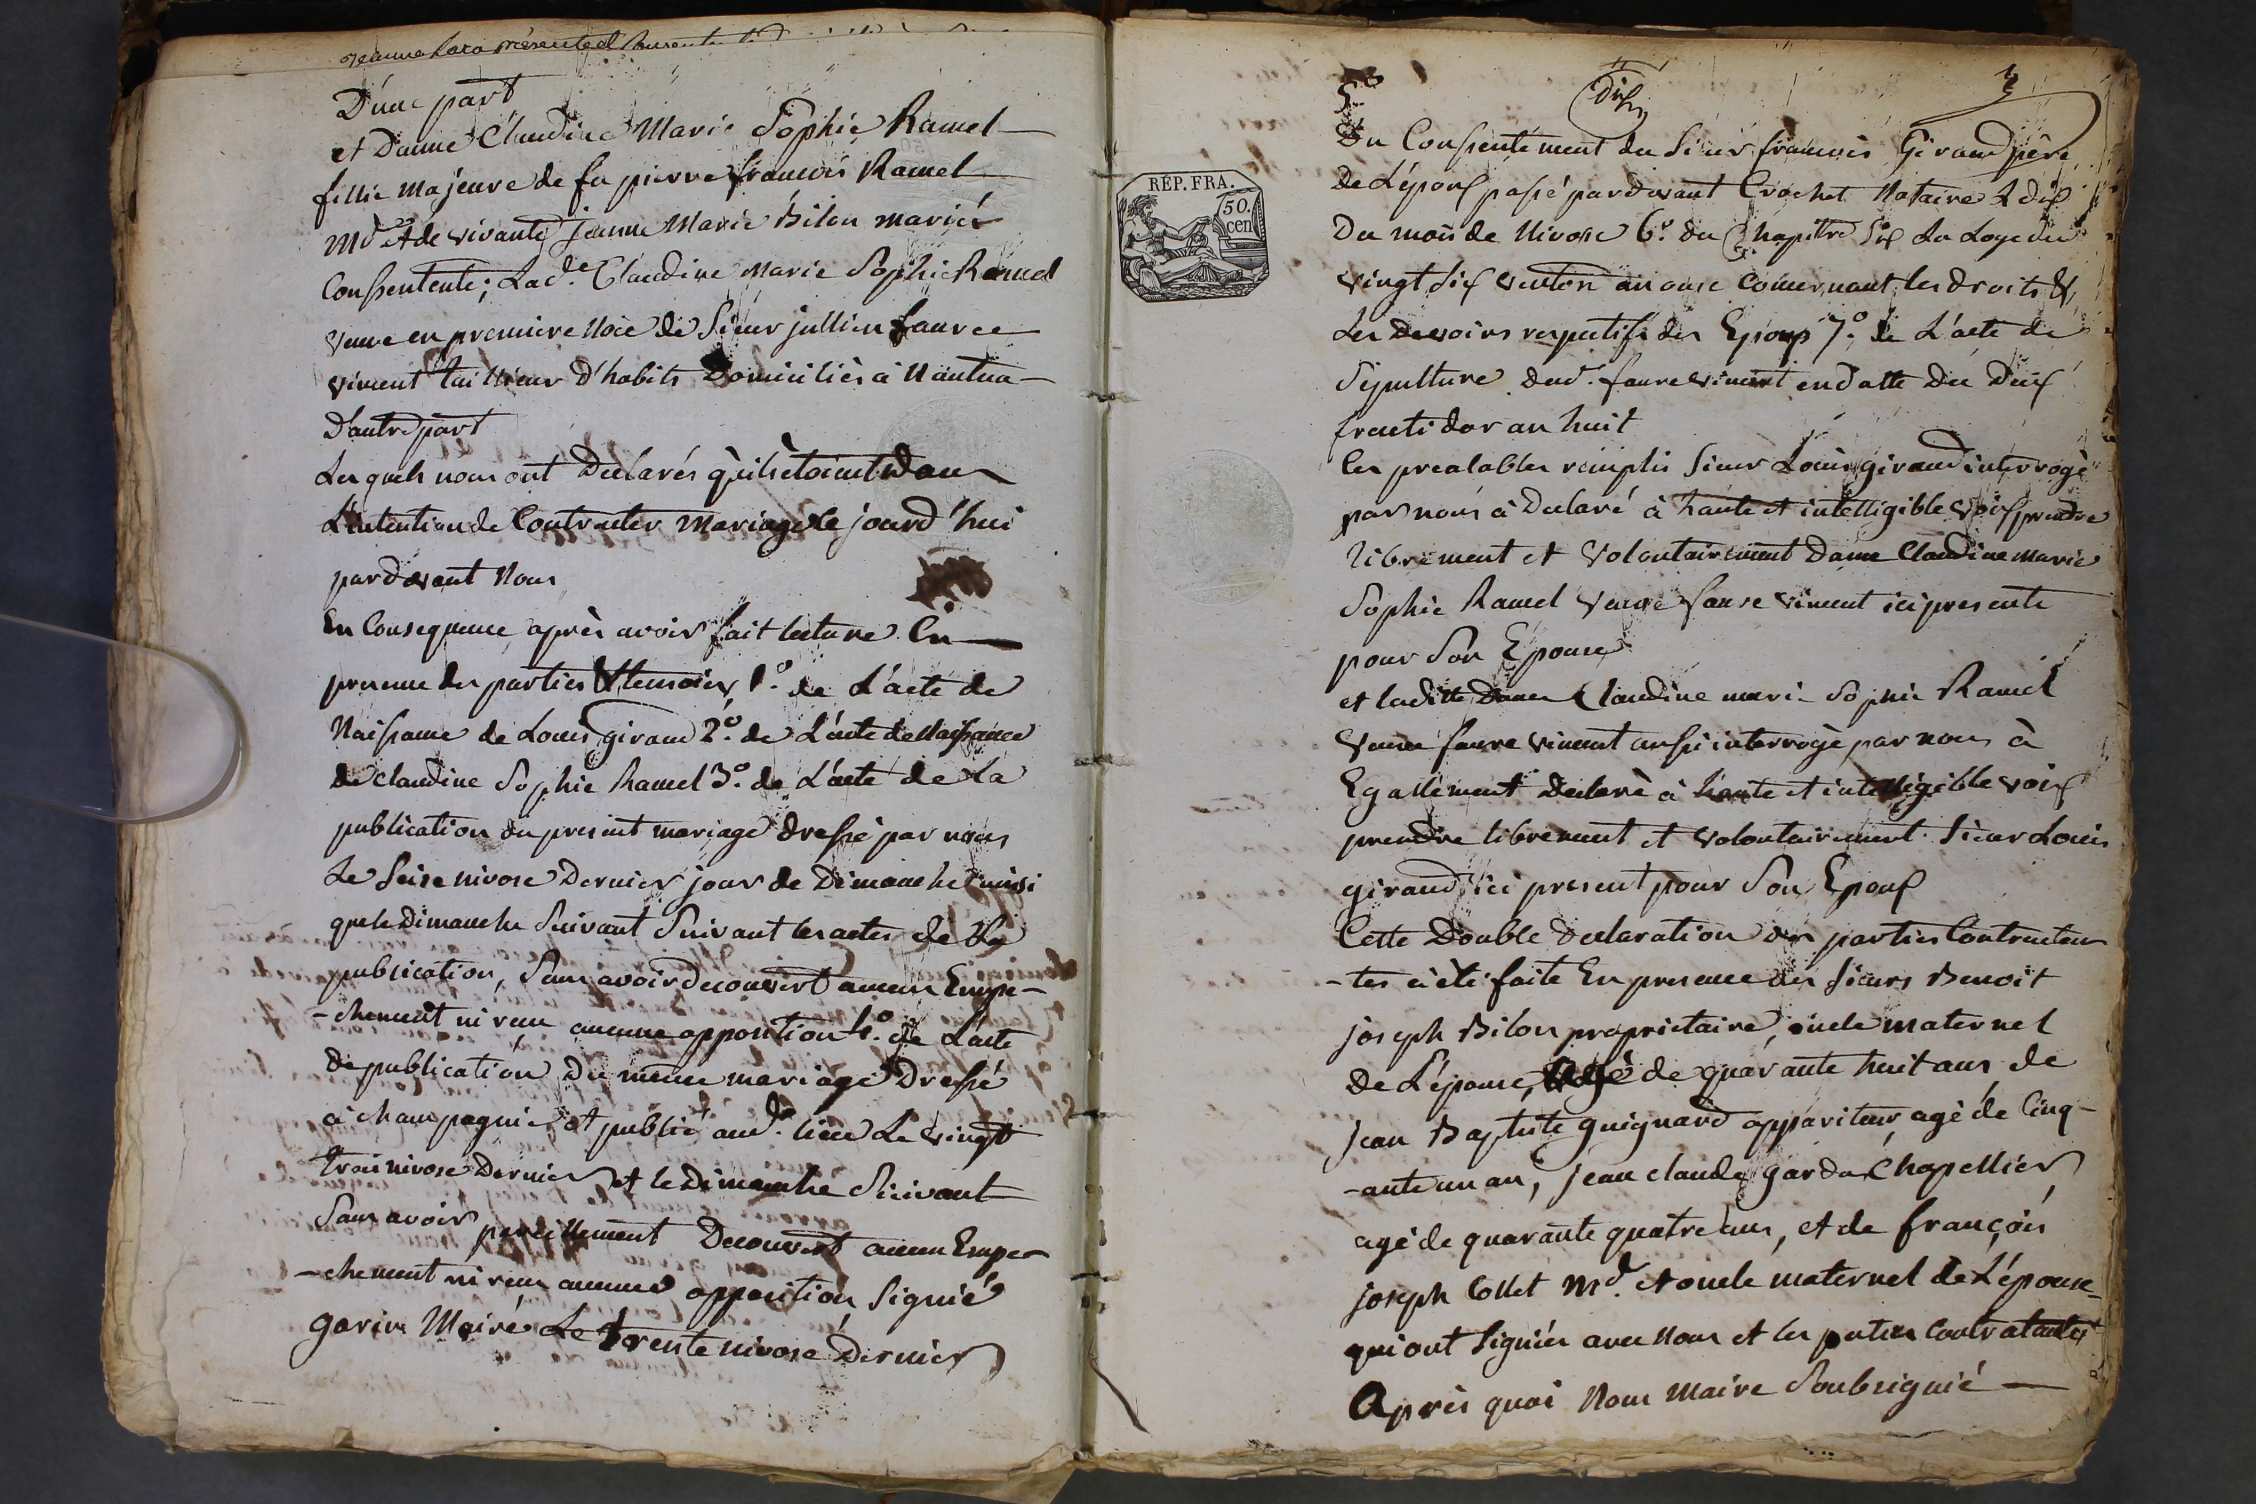 D'une part
et Damme Claudine Marie Sophie Ramel
fillie majeure de fu pierre françois Ramel
Md. et de vivante jeanne Marie Bilon mariés
Consentente; Lad.e Claudine Marie Sophie Ramel
veuve en premiere Noce de Sieur jullien faure
vincent tailleur d'habits Domiciliès à Nantua
D'autre part
Lesquels nous ont Declarés qu'ils étoient dans
L'intention de Contracter Mariage ce jourd'hui
pardevant Nous
En Consequence après avoir fait lecture En
presence des parties & temoins 1o. de L'acte de
Naissance de Louis giraud 2o. de L'acte de Naissance
de claudine Sophie Ramel 3o. de L'acte de La
publication du present mariage dressé par nous
Le Seize nivose Dernier jour de Dimanche ainsi
que le Dimanche Suivant Suivant les actes de La
publication, Sans avoir decouvert aucun Empe-
-chement ni reçu aucune opposition 4o. de L'acte
De publication Du même mariage Dressé
à Champagnie, et publié aud. lieu Le vingt
trois nivose Dernier et le Dimanche Suivant
Sans avoir pareillement Decouvert aucun Empe-
-chement ni reçu aucune opposition, Signié
garin Maire Le trente nivose Dernier
5o
Dix
Du Consentement du Sieur françois Giraud père
De L'époux passé pardevant Crochet Notaire L dix
Du mois de Nivose 6o. du Chapitre Six La Loge du
vingt six ventose an onze Concernant les droits &
Les devoirs respectifs des Epoux 7o. de L'acte de
Sepulture dud. faure vincent en datte du Deux
fructidor an huit
Ces prealables remplis Sieur Louis giraud interrogè
par nous à Declaré à haute et intelligible Voix prendre
librement et Volontairement Dame Claudine marie
Sophie Ramel Veuve faure vincent ici presente
pour Son Epouse
et laditte Dame Claudine marie Sophie Ramel
Veuve faure vincent aussi interrogè par nous à
Egallement Declarè à haute et intelligible voix
prendre librement et volontairement Sieur Louis
giraud ici present pour Son Epoux
Cette Double declaration des parties Contracten
-tes à été faite En presence des Sieurs Benoit
joseph Bilon proprietaire, oncle maternel
De L'épouse, Agé de quarante huit ans de
Jean Baptiste guignard appariteur, agé de Cinq-
-ante un an, jean claude garda Chapellier
agé de quarante quatre ans, et de françois
joseph Collet Md. et oncle maternel de L'épouse
qui ont Signiés avec Nous et les parties Contratantes
Après quoi Nous Maire Soubsignié
RÉP. FRA.
50.
cen